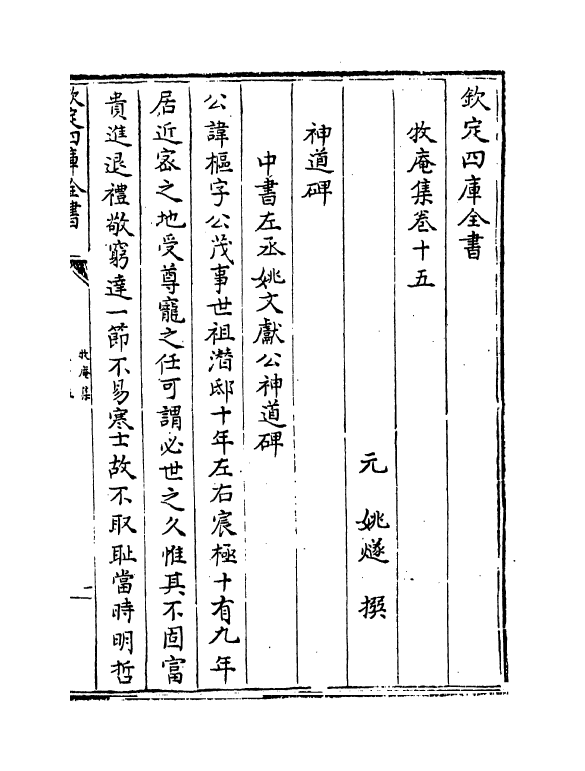 欽定四庫全書
牧庵集卷十五
元 姚燧 撰
神道碑
中書左丞姚文獻公神道碑
公諱樞字公茂事世祖潛邸十年左右宸極十有九年
居近密之地受尊寵之任可謂必世之久惟其不固富
貴進退禮敬窮達一節不易寒士故不取耻當時明哲
欽定四庫全書
牧庵集
一